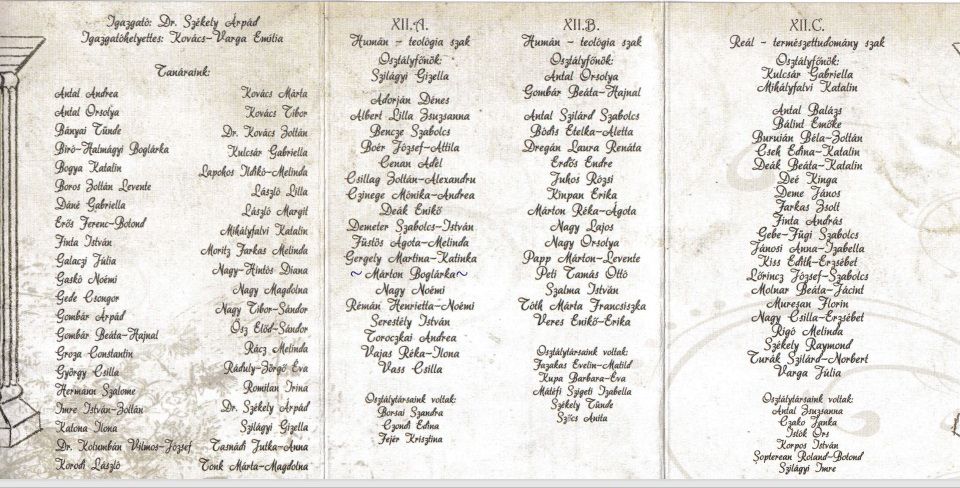 Igazgató: Dr. Székely Árpád
Igazgatóhelyettes: Kovács-Varga Emília
Tanáraink:
Antal Andrea
Antal Orsolya
Bányai Tünde
Bíró-Halmágyi Boglárka
Bogya Katalin
Boros Zoltán Levente
Dáné Gabriella
Erős Ferenc-Botond
Finta István
Galaczi Júlia
Gaskó Noémi
Gede Csongor
Gombár Árpád
Gombár Beáta-Hajnal
Groza Constantin
György Csilla
Hermann Szalome
Imre István-Zoltán
Katona Ilona
Dr. Kolumbán Vilmos-József
Korodi László
Kovács Márta
Kovács Tibor
Dr. Kovács Zoltán
Kulcsár Gabriella
Lapohos Ildikó-Melinda
László Lilla
László Margit
Mihályfalvi Katalin
Moritz Farkas Melinda
Nagy-Hintós Diana
Nagy Magdolna
Nagy Tibor-Sándor
Ősz Előd-Sándor
Rácz Melinda
Ráduly-Zörgő Éva
Romitan Irina
Dr. Székely Árpád
Szilágyi Gizella
Tasnádi Jutka-Anna
Tonk Márta-Magdolna
XII.A.
Humán - teológia szak
Osztályfőnök:
Szilágyi Gizella
Adorján Dénes
Albert Lilla Zsuzsanna
Bencze Szabolcs
Boér József-Attila
Cenan Adél
Csillag Zoltán-Alexandru
Czinege Mónika-Andrea
Deák Enikő
Demeter Szabolcs-István
Füstös Ágota-Melinda
Gergely Martina-Katinka
~ Márton Boglárka~
Nagy Noémi
Rémán Henrietta-Noémi
Serestély István
Toroczkai Andrea
Vajas Réka-Ilona
Vass Csilla
Osztálytársaink voltak:
Borsai Szandra
Czondi Edina
Fejér Krisztina
XII.B.
Humán - teológia szak
Osztályfőnök:
Antal Orsolya
Gombár Beáta-Hajnal
Antal Szilárd Szabolcs
Bódis Etelka-Aletta
Dregán Laura Renáta
Erdős Endre
Juhos Rózsi
Kinpan Erika
Márton Réka-Ágota
Nagy Lajos
Nagy Orsolya
Papp Márton-Levente
Peti Tamás Ottó
Szalma István
Tóth Márta Franciszka
Veres Enikő-Erika
Osztálytársaink voltak:
Fazakas Evelin-Matild
Kupa Barbara-Éva
Máléfi Szigeti Izabella
Székely Tünde
Szőcs Anita
XII.C.
Reál - természettudomány szak
Osztályfőnök:
Kulcsár Gabriella
Mihályfalvi Katalin
Antal Balázs
Bálint Emőke
Buruián Béla-Zoltán
Cseh Edina-Katalin
Deák Beáta-Katalin
Deé Kinga
Deme János
Farkas Zsolt
Finta András
Gebe-Fügi Szabolcs
Jánosi Anna-Izabella
Kiss Edith-Erzsébet
Lőrincz József-Szabolcs
Molnar Beáta-Jácint
Mureșan Florin
Nagy Csilla-Erzsébet
Rigó Melinda
Székely Raymond
Turák Szilárd-Norbert
Varga Júlia
Osztálytársaink voltak:
Antal Zsuzsanna
Czako Janka
Istók Örs
Korpos István
Șopterean Roland-Botond
Szilágyi Imre